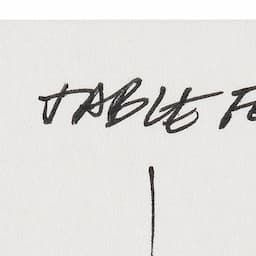 TABLE FE